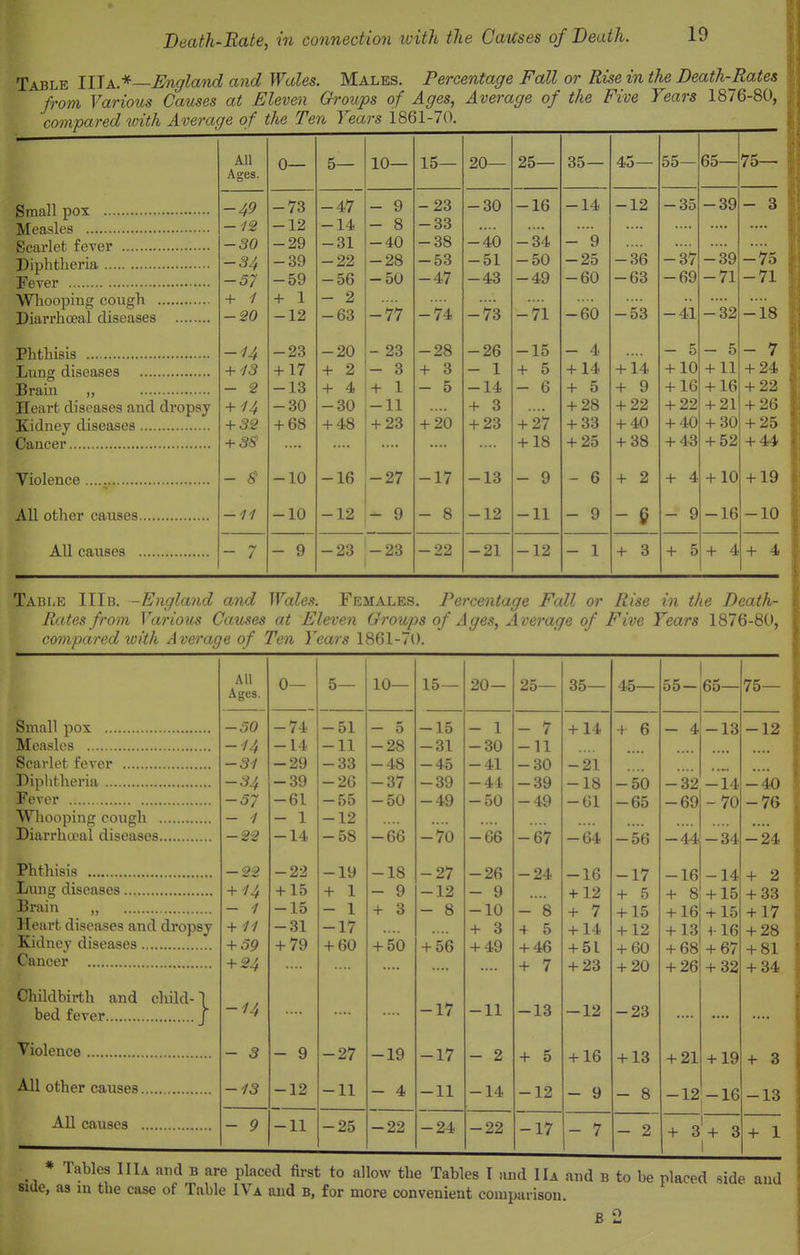 Death-Rate, in connection with the Causes of Death. 19
TABLE IIIA.*—England and Wales. MALES. Percentage Fall or Rise in the Death-Rates
from Various Causes at Eleven Groups of Ages, Average of the Five Years 1876-80,
compared with Average of the Ten Years 1861-70.
All Ages. 0— 5— 10— 15— 20— 25— 35— 45— 55— 65— 75—
Small pox −49 −73 −47 − 9 −23 −30 −16 −14 −12 −35 −39 − 3
Measles −12 −12 −14 − 8 −33 .... .... .... .... .... .... ....
Scarlet fever −30 −29 −31 −40 −38 −40 −34 − 9 .... .... .... ....
Diphtheria −34 −39 −22 −28 −53 −51 −50 −25 −36 −37 −39 −75
Fever −57 −59 −56 −50 −47 −43 −49 −60 −63 −69 −71 −71
Whooping cough + 1 + 1 − 2 .... .... .... .... .... .... .. .... ....
Diarrhœal diseases −20 −12 −63 −77 −74 −73 −71 −60 −53 −41 −32 −18
Phthisis −14 −23 −20 − 23 −28 −26 −15 − 4 .... − 5 − 5 − 7
Lung diseases +13 +17 + 2 − 3 + 3 − 1 + 5 +14 +14 +10 +11 +24
Brain „ − 2 −13 + 4 + 1 − 5 −14 − 6 + 5 + 9 +16 +16 +22
Heart diseases and dropsy +14 −30 −30 −11 .... + 3 .... +28 +22 +22 +21 +26
Kidney diseases +32 +68 +48 +23 +20 +23 +27 +33 +40 +40 +30 +25
Cancer +38 .... .... .... .... .... +18 +25 +38 +43 +52 +44
Violence − 8 −10 −16 −27 −17 −13 − 9 − 6 + 2 + 4 +10 +19
All other causes −11 −10 −12 − 9 − 8 −12 −11 − 9 − 6 − 9 −16 −10
All causes − 7 − 9 −23 −23 −22 −21 −12 − 1 + 3 + 5 + 4 + 4
TABLE IIIB. -England and Wales. FEMALES. Percentage Fall or Rise in the Death-
Rates from Various Causes at Eleven Groups of Ages, Average of Five Years 1876-80,
compared with Average of Ten Years 1861-70.
All Ages. 0— 5— 10— 15— 20— 25— 35— 45— 55— 65— 75—
Small pox −50 −74 −51 − 5 −15 − 1 − 7 +14 + 6 − 4 −13 −12
Measles −14 −14 −11 −28 −31 −30 −11 .... .... .... .... ....
Scarlet fever −31 −29 −33 −48 −45 −41 −30 −21 .... .... .... ....
Diphtheria −34 −39 −26 −37 −39 −44 −39 −18 −50 −32 −14 −40
Fever −57 −61 −55 −50 −49 −50 −49 −61 −65 −69 − 70 −76
Whooping cough − 1 − 1 −12 .... .... .... .... .... .... .... .... ....
Diarrhœal diseases −22 −14 −58 −66 −70 −66 −67 −64 −56 −44 −34 −24
Phthisis −22 −22 −19 −18 −27 −26 −24 −16 −17 −16 −14 + 2
Lung diseases +14 +15 + 1 − 9 −12 − 9 .... +12 + 5 + 8 +15 +33
Brain „ − 1 −15 − 1 + 3 − 8 −10 − 8 + 7 +15 +16 +15 +17
Heart diseases and dropsy +11 −31 −17 .... .... + 3 + 5 +14 +12 +13 +16 +28
Kidney diseases +59 +79 +60 +50 +56 +49 +46 +51 +60 +68 +67 +81
Cancer +24 .... .... .... .... .... + 7 +23 +20 +26 +32 +34
Childbirth and child-}
bed fever −14 .... .... .... −17 −11 −13 −12 −23 .... .... ....
Violence − 3 − 9 −27 −19 −17 − 2 + 5 +16 +13 +21 +19 + 3
All other causes −13 −12 −11 − 4 −11 −14 −12 − 9 − 8 −12 −16 −13
All causes − 9 −11 −25 −22 −24 −22 −17 − 7 − 2 + 3 + 3 + 1
* Tables IIIA and B are placed first to allow the Tables I and IIA and B to be placed side and
side, as in the case of Table IVA and B, for more convenient comparison.
B 2